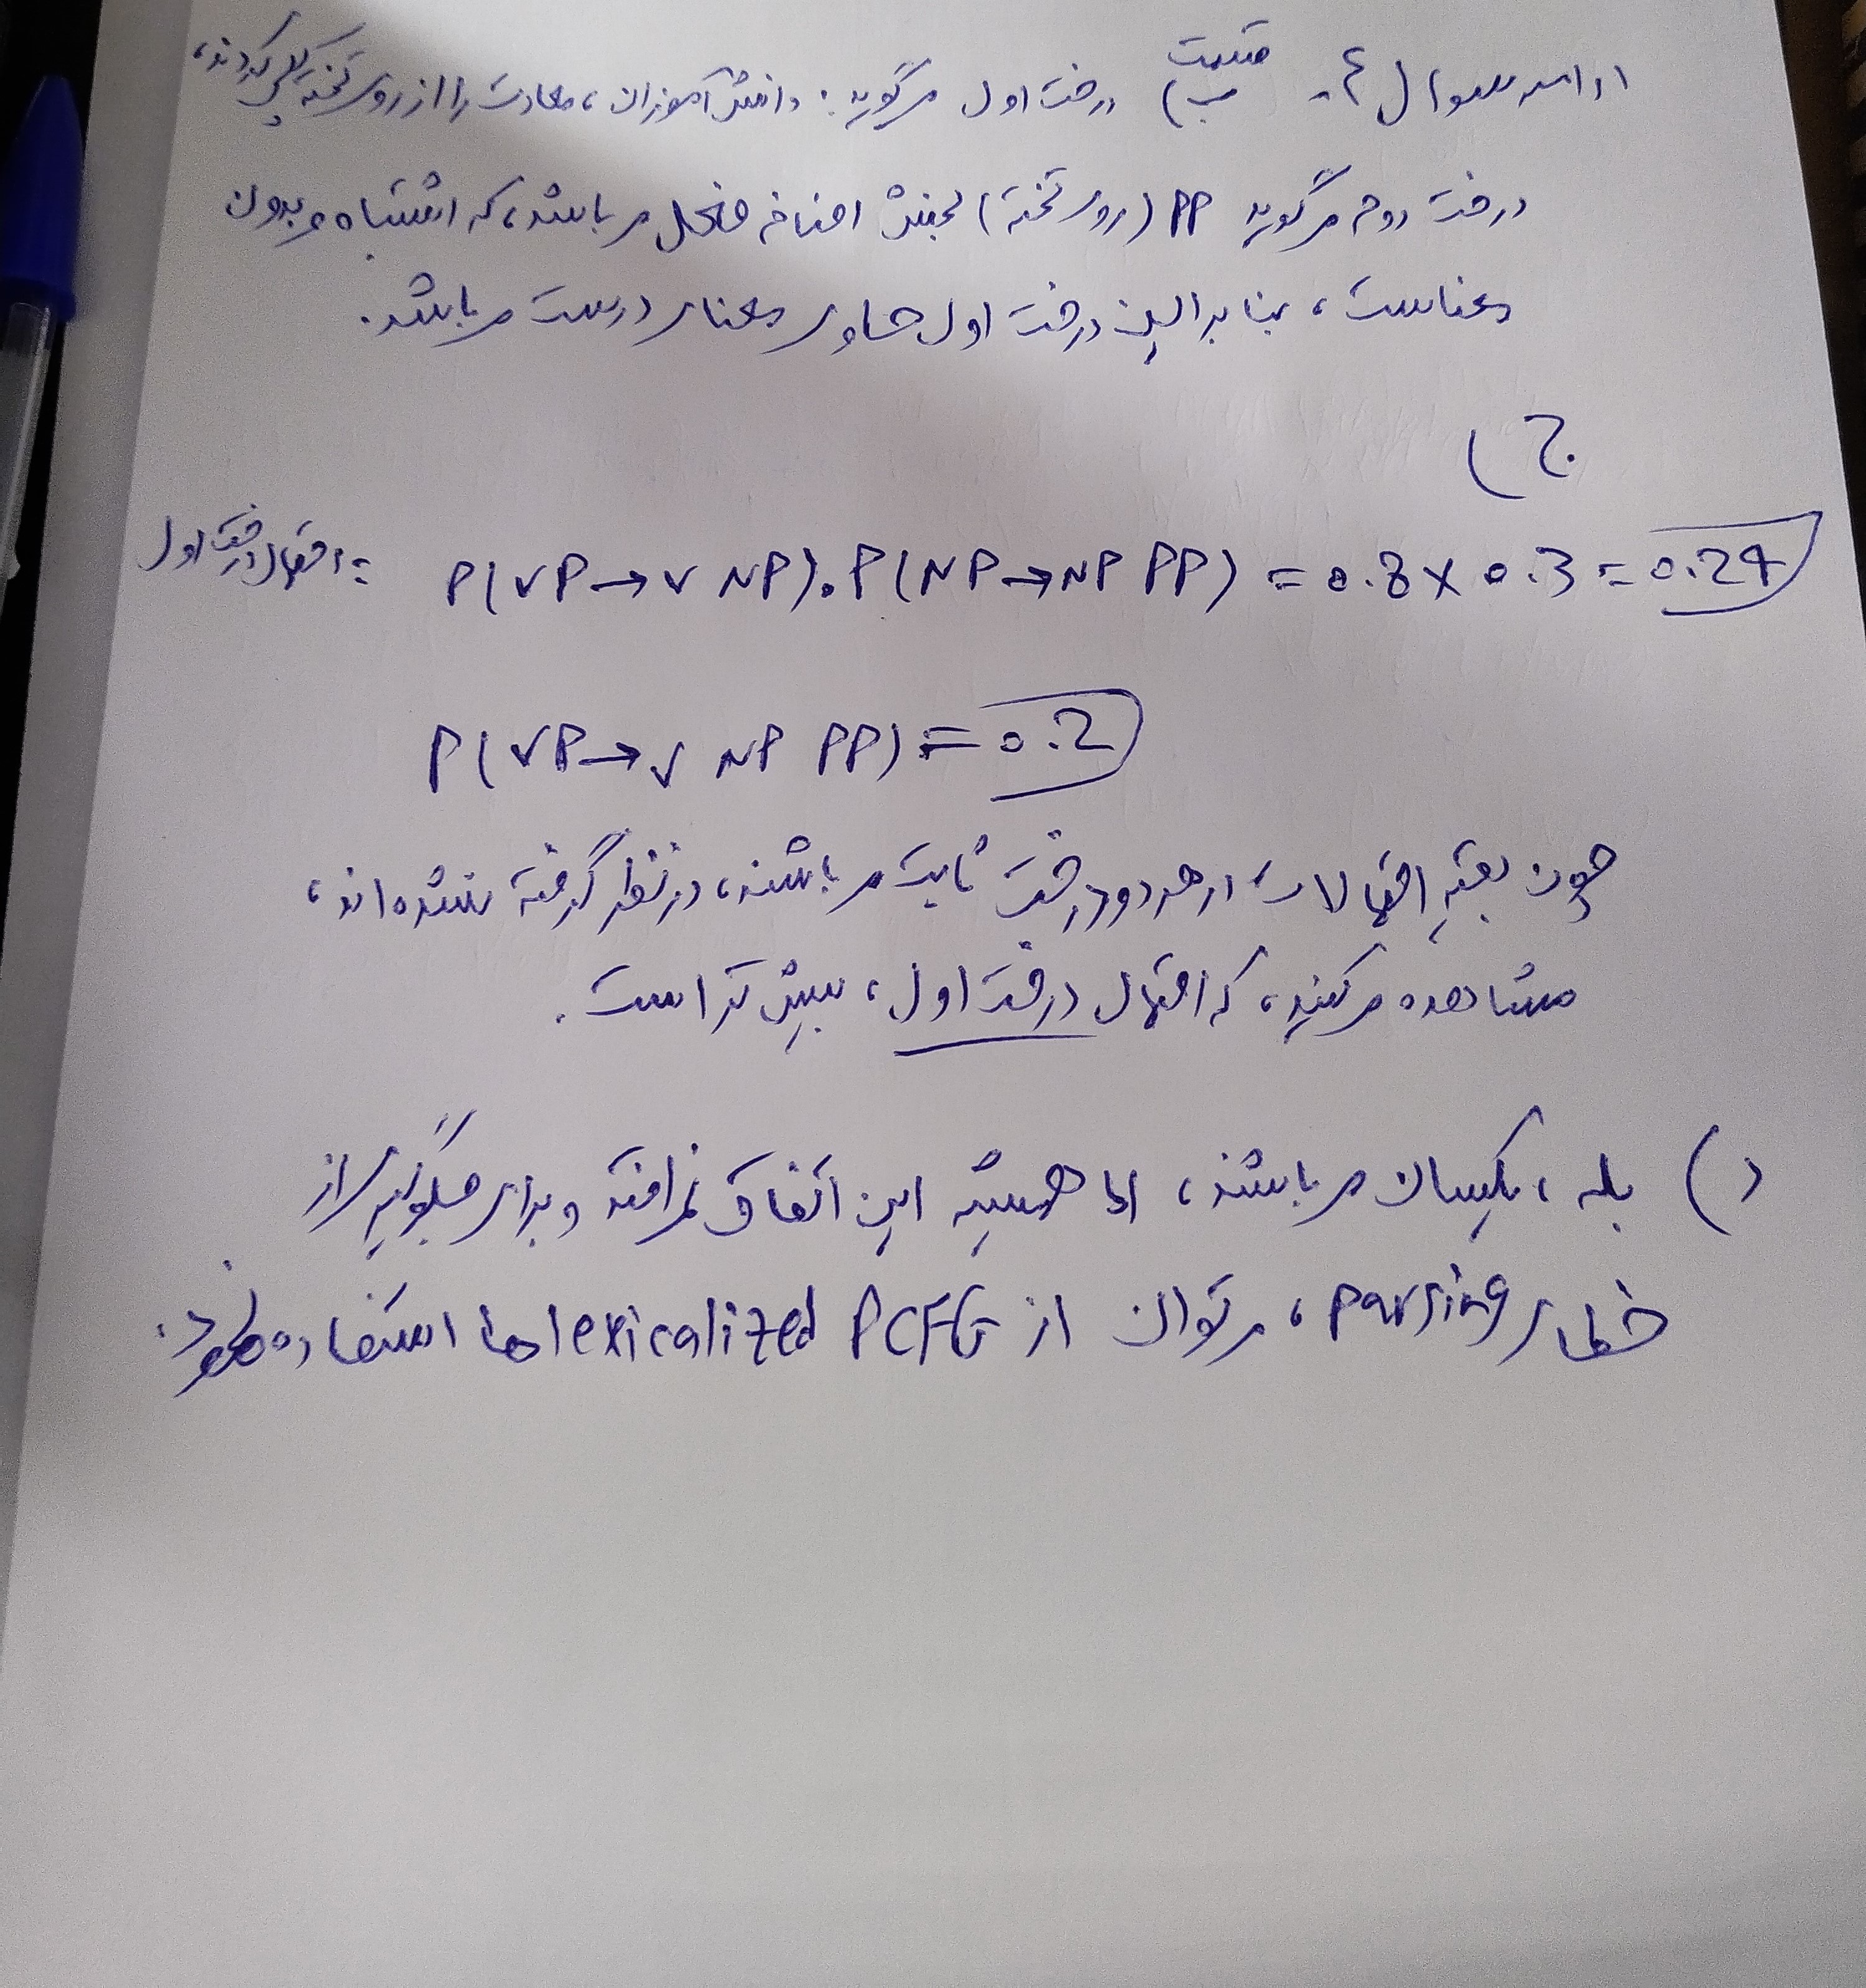 ادامه سوال ۴- قسمت ب) درخت اول می‌گوید: دانش‌آموزان، معادلات را از روی تخته کپی کردند،
درخت دوم می‌گوید PP (روی تخته) بخش اضافه فعل می‌باشد، که اشتباه و بدون
معناست، بنابراین درخت اول حاوی معنای درست می‌باشد.
ج)
احتمال درخت اول = P(VP → V NP) . P(NP → NP PP) = 0.8 × 0.3 = 0.24
P(VP → V NP PP) = 0.2
چون بقیه احتمالات در هر دو درخت ثابت می‌باشند، در نظر گرفته نشده‌اند،
مشاهده می‌کنید، که احتمال درخت اول، بیش‌تر است.
د) بله، یکسان می‌باشند، اما همیشه این اتفاق نمی‌افتد و برای جلوگیری از
خطای parsing، می‌توان از lexicalized PCFG ها استفاده نمود.